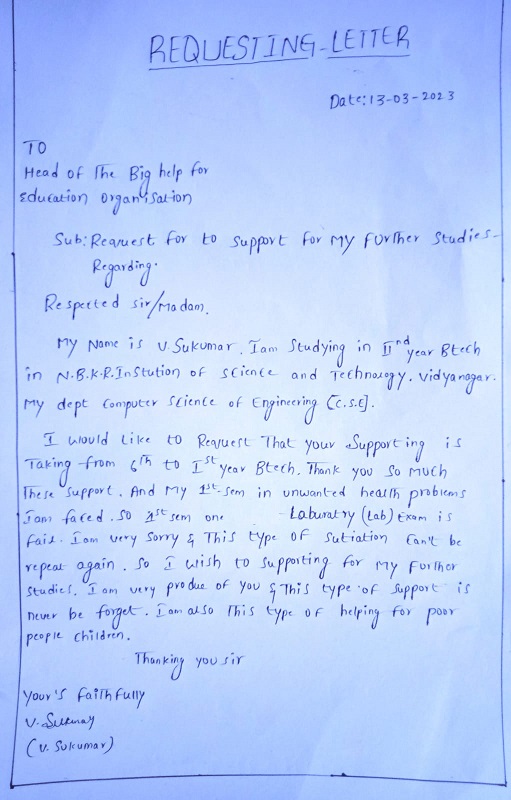 REQUESTING-LETTER
Date: 13-03-2023
TO
Head of The Big help for
Education organisation
Sub: Request for to support for My Further Studies-
Regarding.
Respected sir/Madam.
My Name is V. Sukumar. Iam Studying in IInd year Btech
in N.B.K.R. InStution of science and Technoogy. Vidyanagar.
My dept Computer Science of Engineering [C.S.E].
I would like to Request That your Supporting is
Taking from 6th to Ist year Btech. Thank you so Much
These support. And My 1st-sem in unwanted health problems
Iam faced. so 1st sem one - Laburatry (Lab) Exam is
fail. Iam very sorry & This type of sutiation Can't be
repeat again. so I wish to supporting for My Further
Studies. I am very produe of you & This type of support is
never be forget. Iam also This type of helping for poor
people children.
Thanking you sir
Your's faithfully
(V. Sukumar)